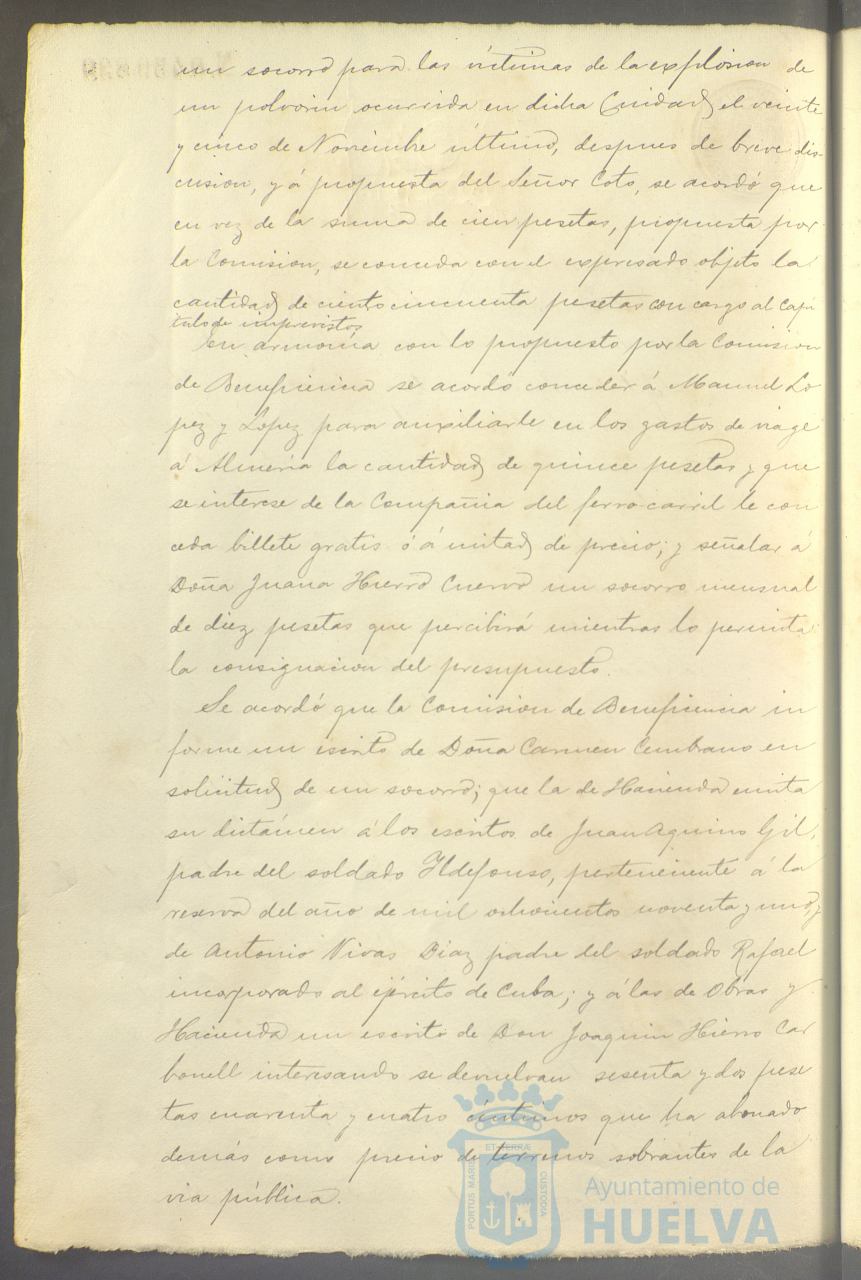 un socorro para las víctimas de la explosion de
un polvorin ocurrida en dicha Ciudad el veinte
y cinco de Noviembre último, despues de breve dis-
cusion, y á propuesta del Señor Coto, se acordó que
en vez de la suma de cien pesetas, propuesta por
la Comision, se conceda con el expresado objeto la
cantidad de ciento cincuenta pesetas con cargo al Capi
tulo de imprevistos
En armonía con lo propuesto por la Comision
de Beneficencia se acordó conceder á Manuel Lo
pez y Lopez para auxiliarle en los gastos de viage
á Almería la cantidad de quince pesetas y que
se interese de la Compañia del ferro-carril le con
ceda billete gratis ó á mitad de precio; y señalar á
Doña Juana Hierro Cuervo un socorro mensual
de diez pesetas que percibirá mientras lo permita
la consignacion del presupuesto.
Se acordó que la Comision de Beneficencia in
forme un escrito de Doña Carmen Cembrano en
solicitud de un socorro; que la de Hacienda emita
su dictámen á los escritos de Juan Aquino Gil,
padre del soldado Ildefonso, perteneciente á la
reserva del año de mil ochocientos noventa y uno, y
de Antonio Vivas Diaz padre del soldado Rafael
incorporado al ejército de Cuba; y á las de Obras y
Hacienda un escrito de Don Joaquin Hierro Car
bonell interesando se devuelvan sesenta y dos pese
tas cuarenta y cuatro céntimos que ha abonado
demás como precio de terrenos sobrantes de la
via pública.
PORTUS MARIS ET TERRÆ CUSTODIA
Ayuntamiento de
HUELVA